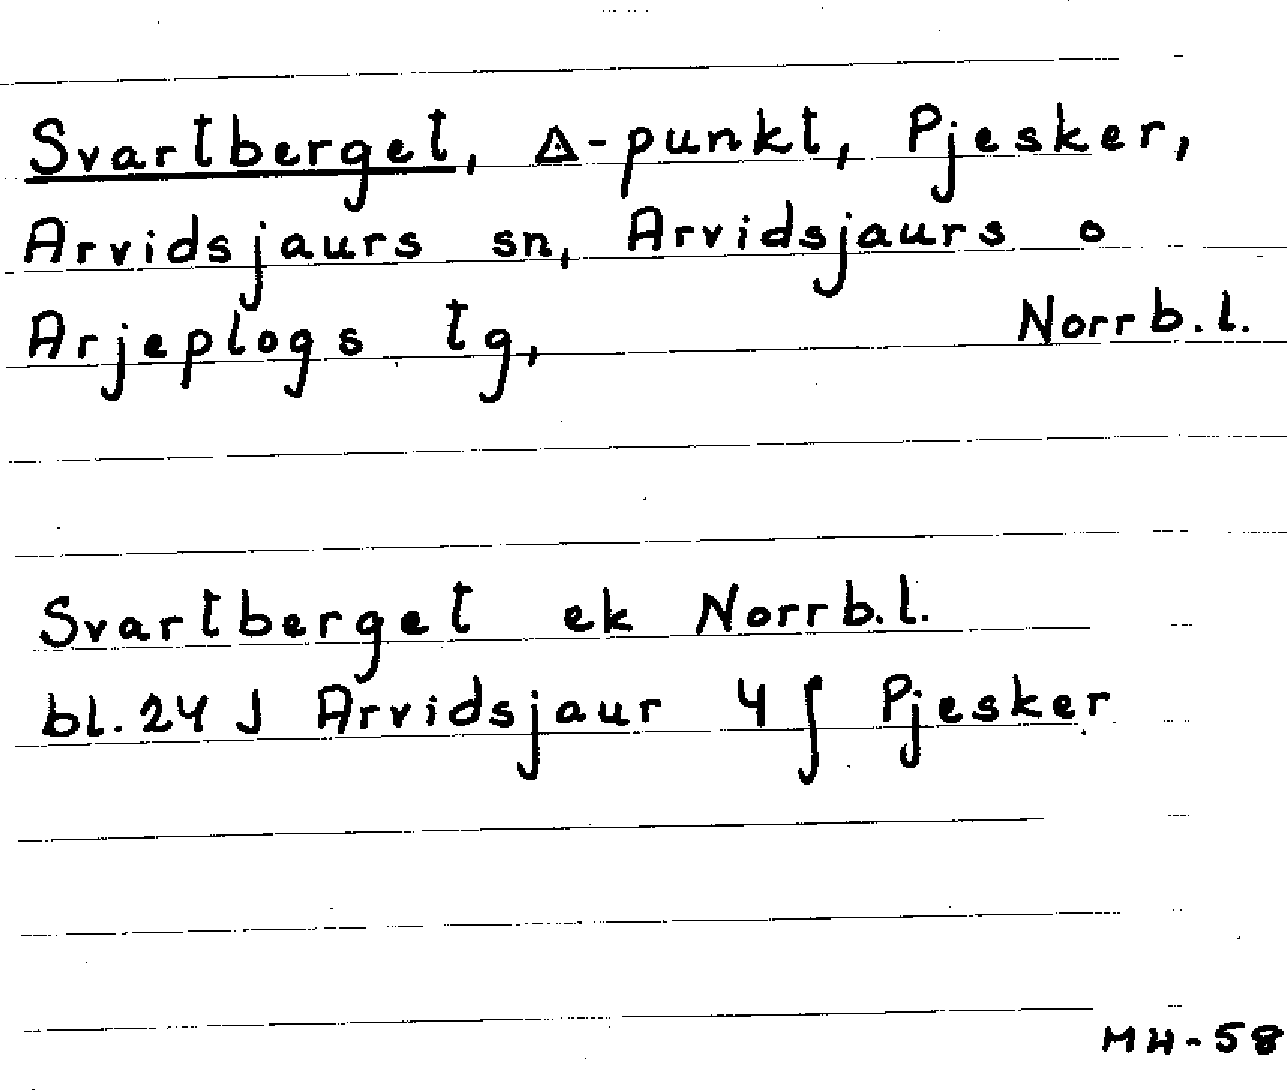 Svartberget, Δ-punkt, Pjesker,
Arvidsjaurs sn, Arvidsjaurs o
Arjeplogs tg, Norrb.l.
Svartberget ek Norrb.l.
bl. 24 J Arvidsjaur 4 f Pjesker
MH-58